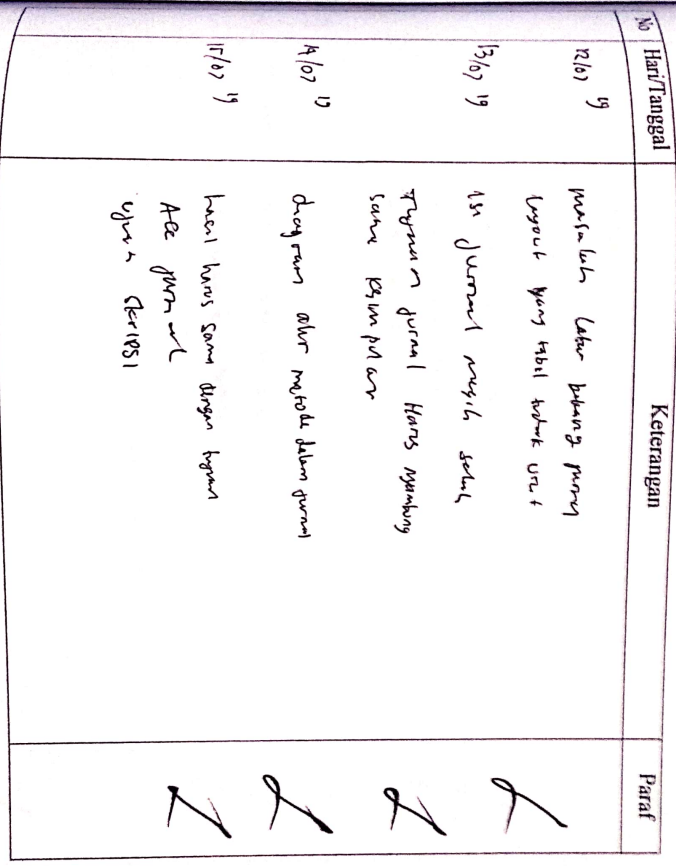 No Hari/Tanggal Keterangan Paraf
12/07 19 masalah latar belakang
layout yang tabel tidak urut
13/07 19 Isi jurnal masih salah
Tujuan jurnal Harus nyambung
sama kesimpulan
14/07 19 diagram alir metode dalam jurnal
15/07 19 hasil harus sama dengan tujuan
Acc jurnal
ujian skripsi